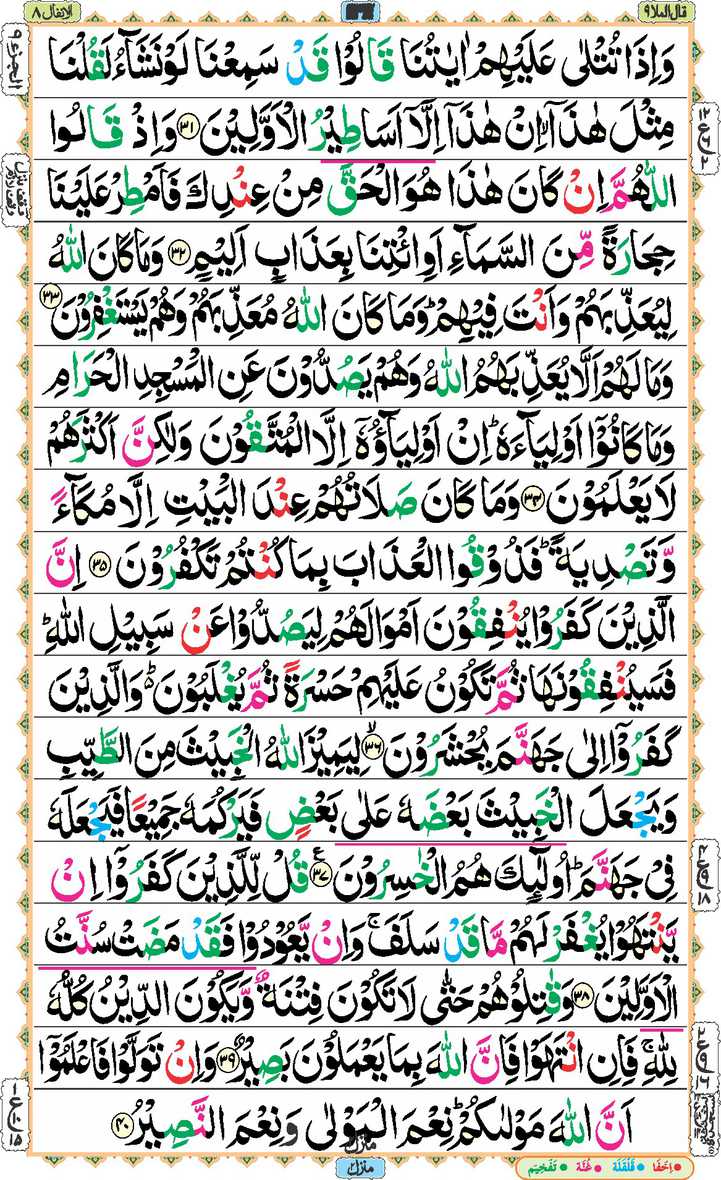 قال الملا ٩
الانفال ٨
وَاِذَا تُتْلٰى عَلَيْهِمْ اٰيٰتُنَا قَالُوْا قَدْ سَمِعْنَا لَوْ نَشَآءُ لَقُلْنَا
مِثْلَ هٰذَآ ۙ اِنْ هٰذَآ اِلَّآ اَسَاطِيْرُ الْاَوَّلِيْنَ ۝٣١ وَاِذْ قَالُوا
اللّٰهُمَّ اِنْ كَانَ هٰذَا هُوَ الْحَقَّ مِنْ عِنْدِكَ فَاَمْطِرْ عَلَيْنَا
حِجَارَةً مِّنَ السَّمَآءِ اَوِ ائْتِنَا بِعَذَابٍ اَلِيْمٍ ۝٣٢ وَمَا كَانَ اللّٰهُ
لِيُعَذِّبَهُمْ وَاَنْتَ فِيْهِمْ ؕ وَمَا كَانَ اللّٰهُ مُعَذِّبَهُمْ وَهُمْ يَسْتَغْفِرُوْنَ ۝٣٣
وَمَا لَهُمْ اَلَّا يُعَذِّبَهُمُ اللّٰهُ وَهُمْ يَصُدُّوْنَ عَنِ الْمَسْجِدِ الْحَرَامِ
وَمَا كَانُوْٓا اَوْلِيَآءَهٗ ؕ اِنْ اَوْلِيَآؤُهٗٓ اِلَّا الْمُتَّقُوْنَ وَلٰكِنَّ اَكْثَرَهُمْ
لَا يَعْلَمُوْنَ ۝٣٤ وَمَا كَانَ صَلَاتُهُمْ عِنْدَ الْبَيْتِ اِلَّا مُكَآءً
وَّتَصْدِيَةً ؕ فَذُوْقُوا الْعَذَابَ بِمَا كُنْتُمْ تَكْفُرُوْنَ ۝٣٥ اِنَّ
الَّذِيْنَ كَفَرُوْا يُنْفِقُوْنَ اَمْوَالَهُمْ لِيَصُدُّوْا عَنْ سَبِيْلِ اللّٰهِ ؕ
فَسَيُنْفِقُوْنَهَا ثُمَّ تَكُوْنُ عَلَيْهِمْ حَسْرَةً ثُمَّ يُغْلَبُوْنَ ۬ؕ وَالَّذِيْنَ
كَفَرُوْٓا اِلٰى جَهَنَّمَ يُحْشَرُوْنَ ۝٣٦ۙ لِيَمِيْزَ اللّٰهُ الْخَبِيْثَ مِنَ الطَّيِّبِ
وَيَجْعَلَ الْخَبِيْثَ بَعْضَهٗ عَلٰى بَعْضٍ فَيَرْكُمَهٗ جَمِيْعًا فَيَجْعَلَهٗ
فِيْ جَهَنَّمَ ؕ اُولٰٓئِكَ هُمُ الْخٰسِرُوْنَ ۝٣٧ۧ قُلْ لِّلَّذِيْنَ كَفَرُوْٓا اِنْ
يَّنْتَهُوْا يُغْفَرْ لَهُمْ مَّا قَدْ سَلَفَ ۚ وَاِنْ يَّعُوْدُوْا فَقَدْ مَضَتْ سُنَّتُ
الْاَوَّلِيْنَ ۝٣٨ وَقَاتِلُوْهُمْ حَتّٰى لَا تَكُوْنَ فِتْنَةٌ وَّيَكُوْنَ الدِّيْنُ كُلُّهٗ
لِلّٰهِ ۚ فَاِنِ انْتَهَوْا فَاِنَّ اللّٰهَ بِمَا يَعْمَلُوْنَ بَصِيْرٌ ۝٣٩ وَاِنْ تَوَلَّوْا فَاعْلَمُوْٓا
اَنَّ اللّٰهَ مَوْلٰىكُمْ ؕ نِعْمَ الْمَوْلٰى وَنِعْمَ النَّصِيْرُ ۝٤٠
منزل
منزل ٢
اِخفَا • قَلْقَلَة • غُنَّة • تَفْخِيْم